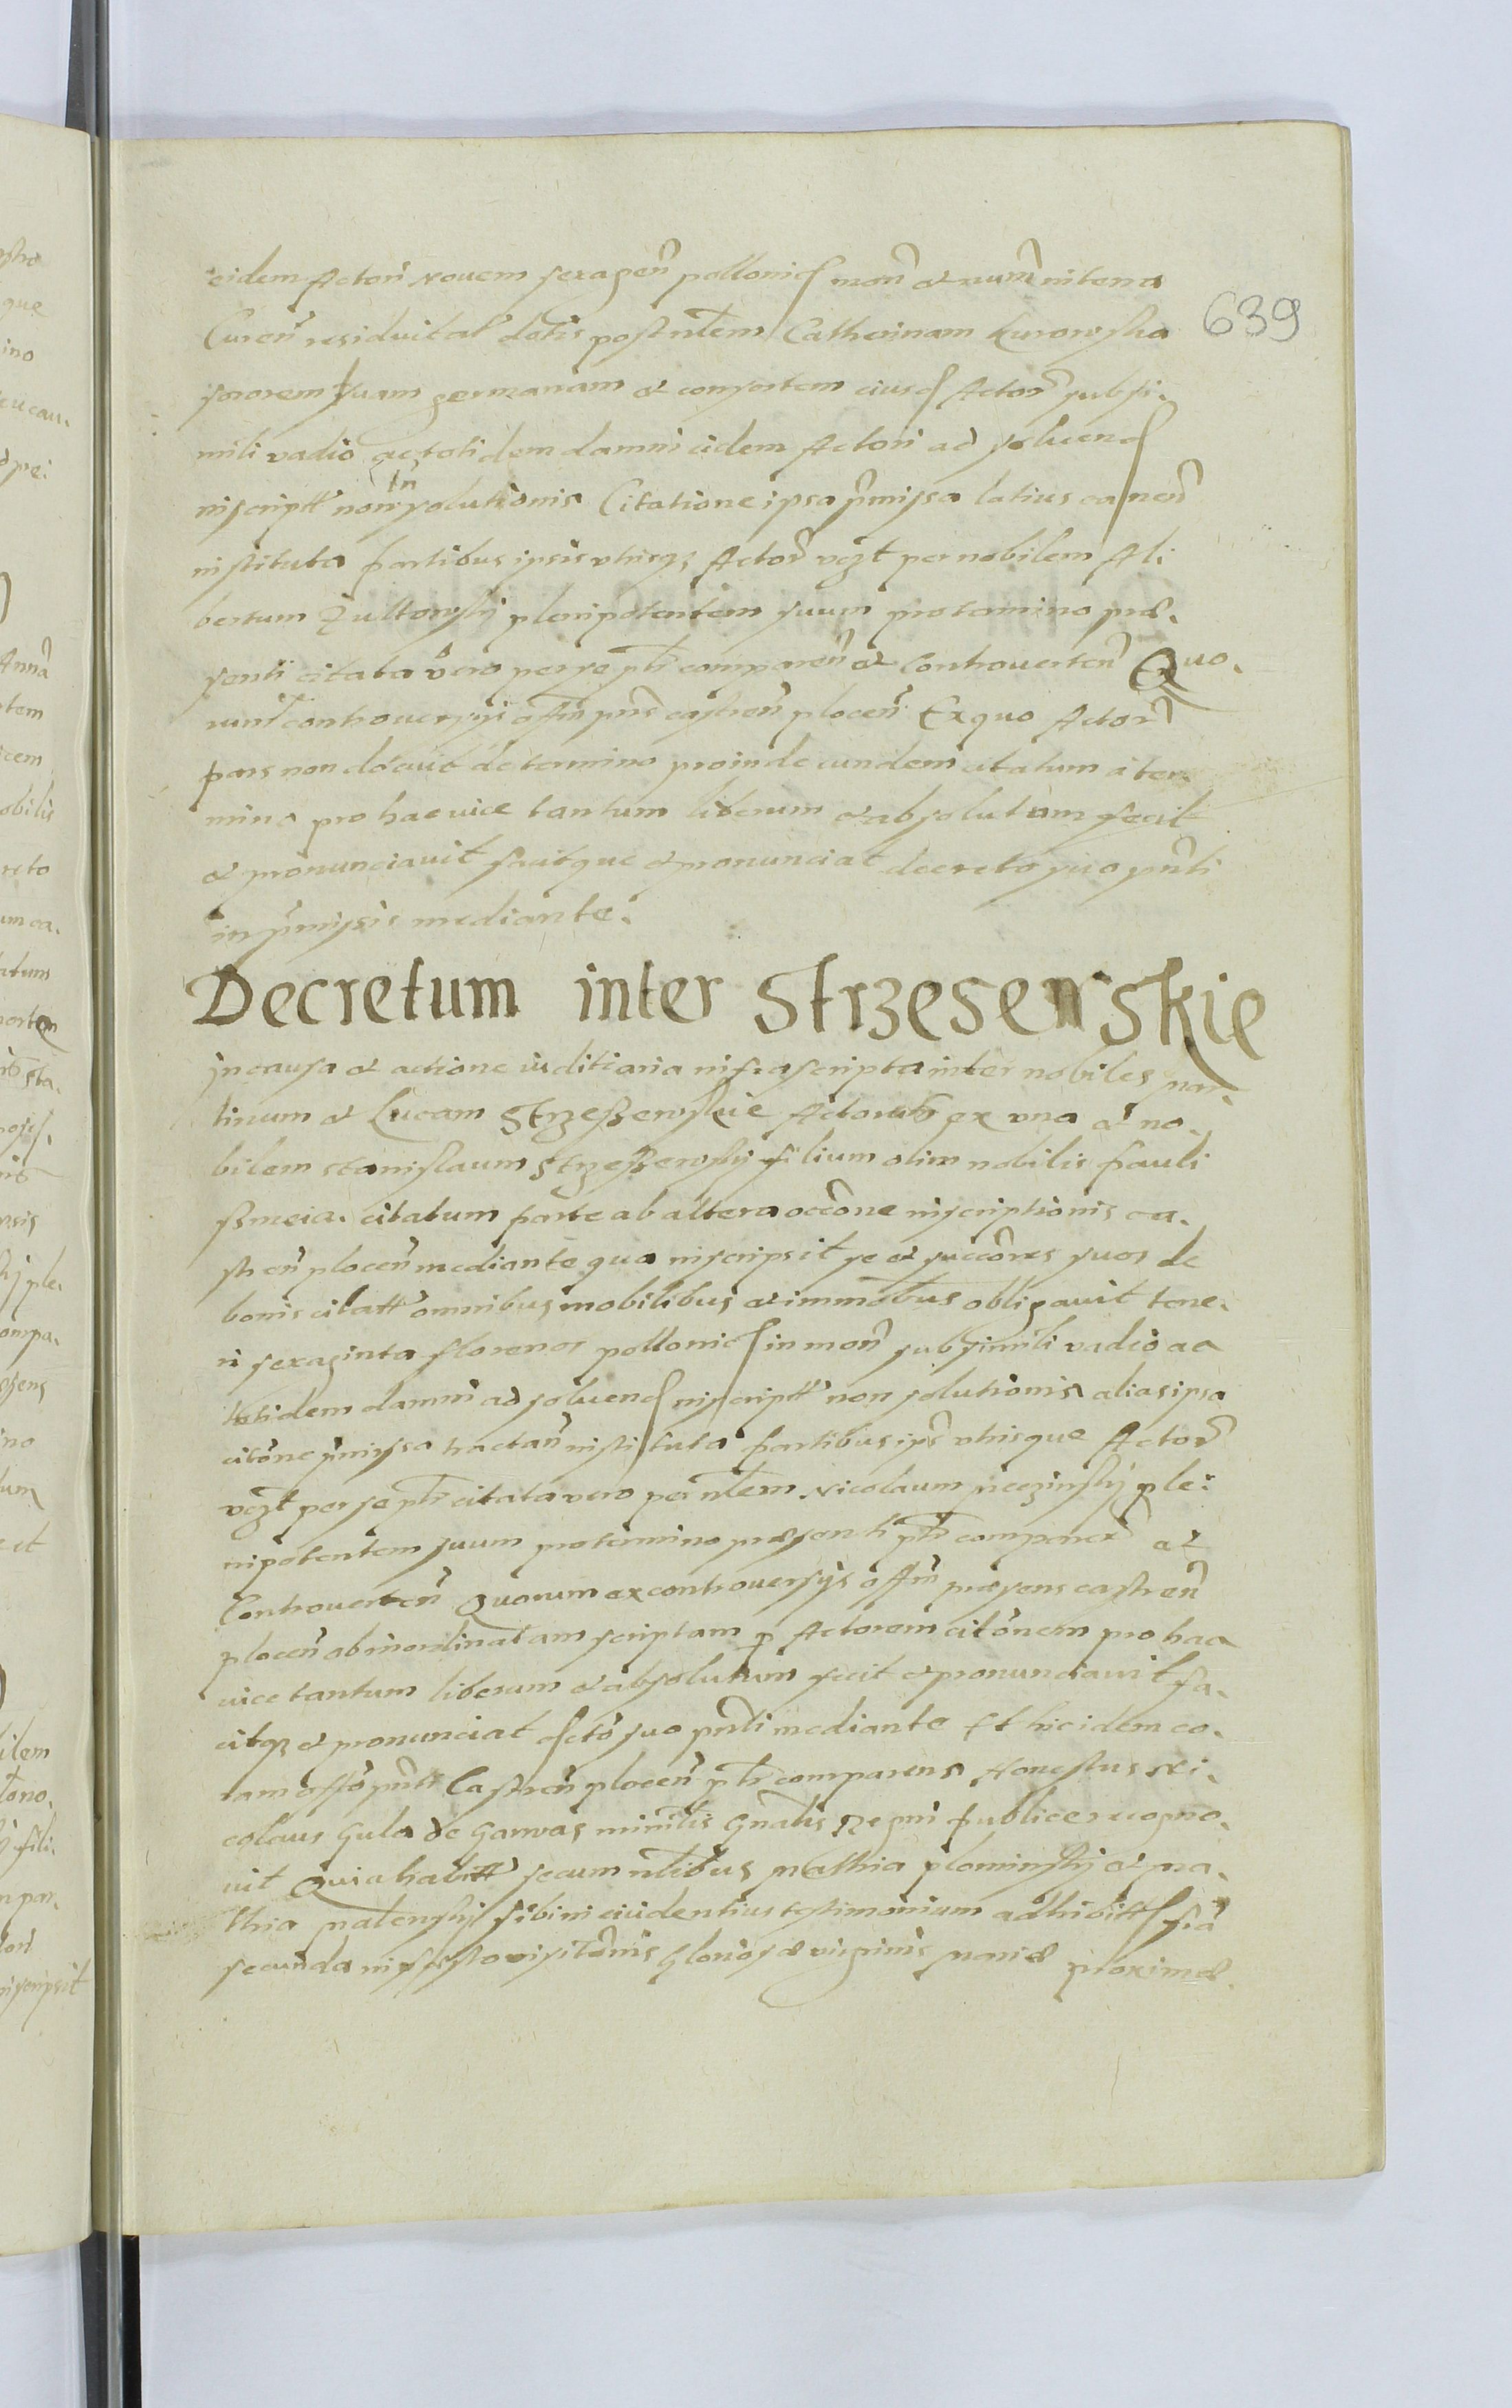 639
eidem Actori novem sexagen pollonic mon et num in tena
Curen residuitat dotis post nlem Catherinam Kurowska
sororem suam germanam et consortem eiusd Actor sub si-
mili vadio ac totidem damni eidem Actori ad soluend
inscriptt non In solutionis Citatione ipsa pmissa latius canen
instituta partibus ipsis vtrisqz Actor vczt per nobilem Al-
bertum Zultowskj plenipotentem suum pro tarmino præ-
senti citata vero per se ptr comparen et Controuerten Quo-
rum controuersijs offm pns castren plocen Ex quo Actor
pars non docuit de termino proinde eundem citatum a ter-
mino pro hac vice tantum liberum et absolutum fecit
et pronunciavit facitque et pronunciat decreto suo pnti
in pmissis mediante.
Decretum inter Strzesewskie
In causa et actione iuditiaria infrascripta inter nobiles mar-
tinum et Lucam Strzeszewskie Actorum ex vna et no-
bilem Stanislaum Strzeszewskj filium olim nobilis pauli
citatum parte ab altera occone inscriptionis ca-
stren plocen mediante qua inscripsit se et succores suos de
bonis citatt omnibus mobilibus et immobus obligavit tene-
ri sexaginta florenos pollonic in mon sub simili vadio ac
totidem damni ad soluend inscriptt non solutionis alias ipsa
citone pmissa tractan instituta partibus ips vtrisque Actor
vczt per se ptr citata vero per nlem Nicolaum plé-
nipotentem suum pro termino præsenti ptr comparen et
Controuerten Quorum ex controuersijs offm præsens castren
plocen ob inordinatam scriptam p Actorem citonem pro hac
vice tantum liberum et absolutum fecit et pronunciauit fa-
citqz et pronunciat dcto suo pnti mediante Et hic idem co-
ram offo pnti Castren plocen ptr comparens Honestus Ni-
colaus Gula de Garwas minrlis Gnalis Regni publice recogno-
uit Quia habitt secum nlibus Mathia plominskj et Ma-
thia sibi in euidentius testimonium adhibitt fra
secunda in festo visitonis Gloriosæ virginis Mariæ proximæ